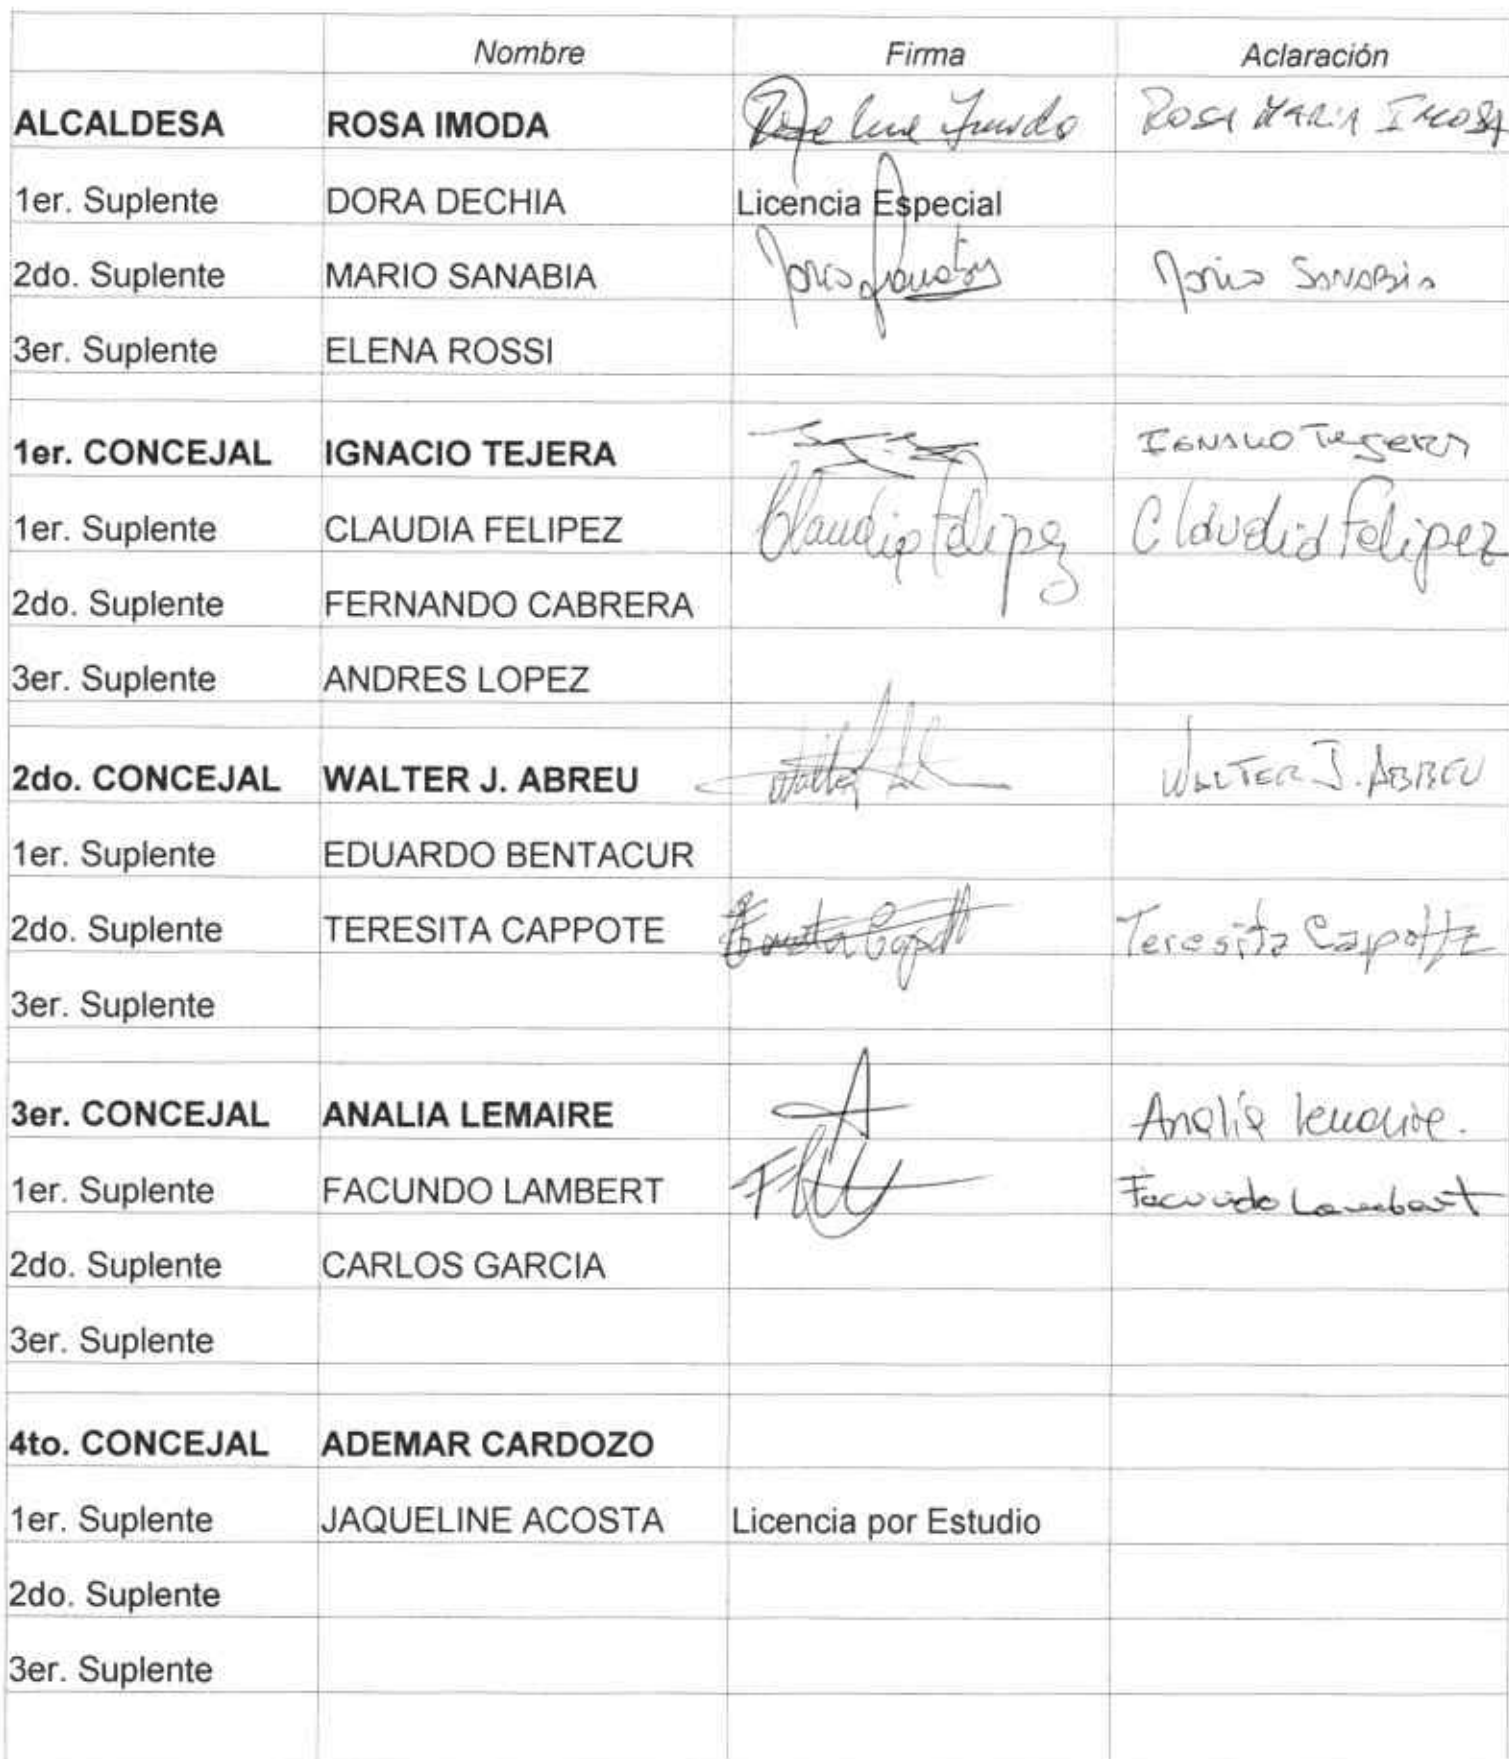 Nombre Firma Aclaración
ALCALDESA ROSA IMODA ROSA MARIA IMODA
1er. Suplente DORA DECHIA Licencia Especial
2do. Suplente MARIO SANABIA Mario SANABIA
3er. Suplente ELENA ROSSI
1er. CONCEJAL IGNACIO TEJERA IGNACIO TEJERA
1er. Suplente CLAUDIA FELIPEZ Claudia Felipez Claudia Felipez
2do. Suplente FERNANDO CABRERA
3er. Suplente ANDRES LOPEZ
2do. CONCEJAL WALTER J. ABREU Walter WALTER J. ABREU
1er. Suplente EDUARDO BENTACUR
2do. Suplente TERESITA CAPPOTE Teresita Capotte
3er. Suplente
3er. CONCEJAL ANALIA LEMAIRE Analía Lemaire.
1er. Suplente FACUNDO LAMBERT Facundo Lambert
2do. Suplente CARLOS GARCIA
3er. Suplente
4to. CONCEJAL ADEMAR CARDOZO
1er. Suplente JAQUELINE ACOSTA Licencia por Estudio
2do. Suplente
3er. Suplente